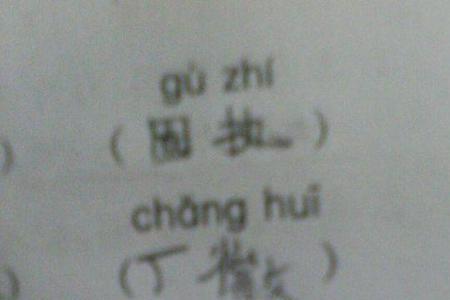 gù zhí
) ( 固 执 )
chǎng huī
) ( 厂 徽 )